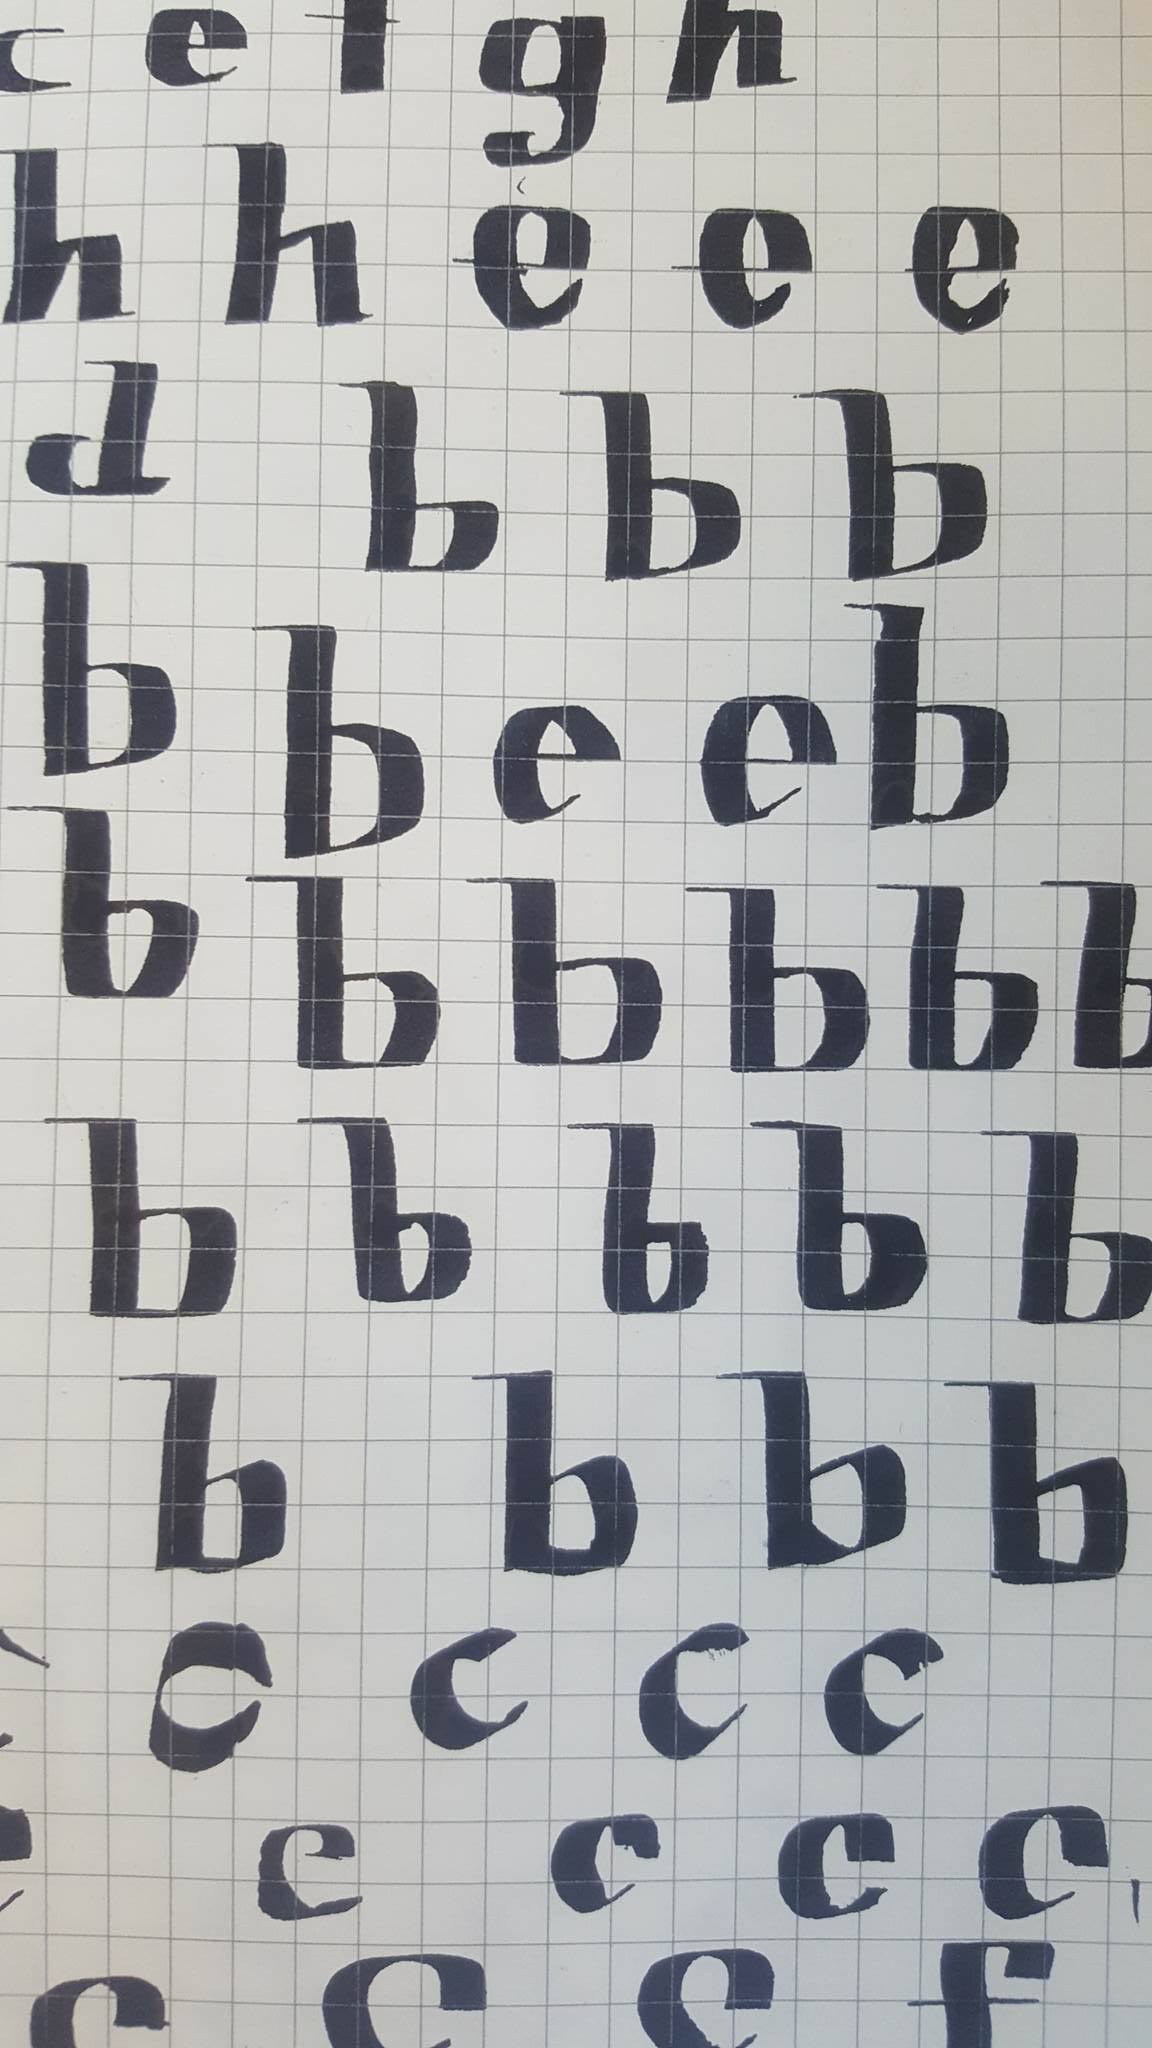 c e f g h
h h e e e
d b b b
b b e e b
b b b b b b
b b b b b
b b b b
c c c c
c c c c
c c c f